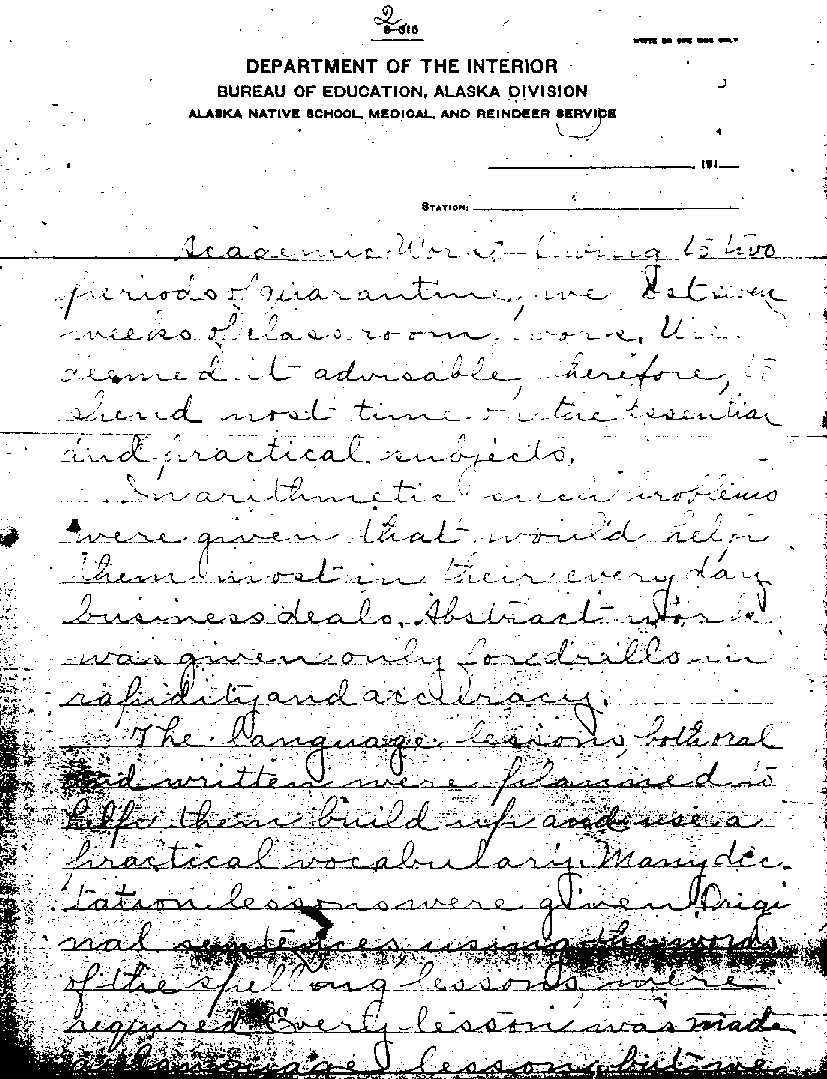 2
6-315
WRITE ON ONE SIDE ONLY
DEPARTMENT OF THE INTERIOR
BUREAU OF EDUCATION, ALASKA DIVISION
ALASKA NATIVE SCHOOL, MEDICAL, AND REINDEER SERVICE
, 191
STATION:
Academic Work - Owing to two
periods of quarantine, we lost seven
weeks of class room work. We
deemed it advisable, therefore, to
spend most time on the essential
and practical subjects.
In arithmetic such problems
were given that would help
them most in their every day
business deals. Abstract work
was given only for drills in
rapidity and accuracy.
The language lessons, both oral
and written were planned to
help them build up and use a
practical vocabulary. Many dic-
tation lessons were given. Origi
nal sentences using the words
of the spelling lessons were
required. Every lesson was made
a language lesson, but we